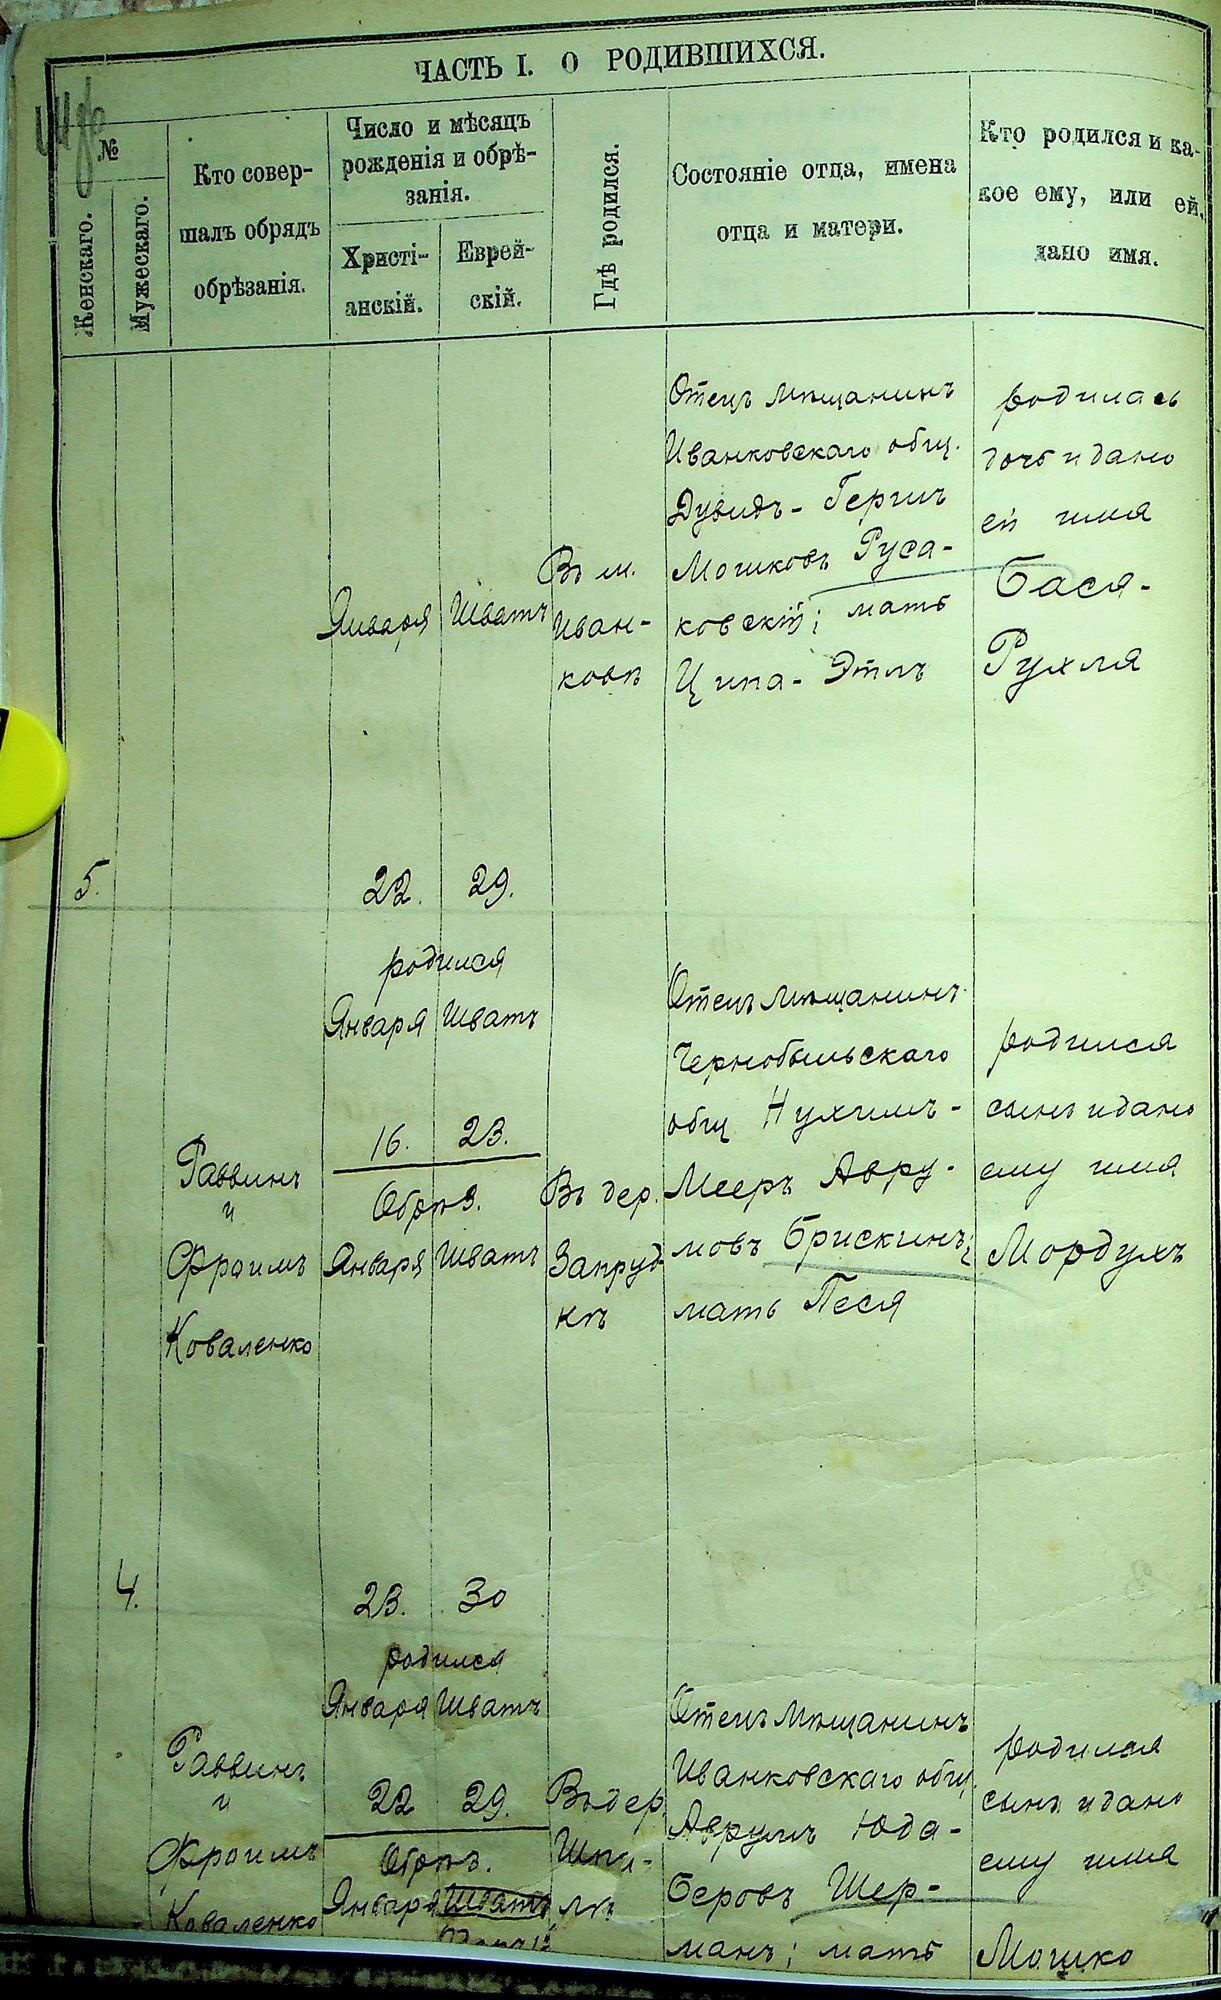 ЧАСТЬ I. О РОДИВШИХСЯ.
№
Женскаго.
Мужескаго.
Кто совер-
шалъ обрядъ
обрѣзанія.
Число и мѣсяцъ
рожденія и обрѣ-
занія.
Христі-
анскій.
Еврей-
скій.
Гдѣ родился.
Состояніе отца, имена
отца и матери.
Кто родился и ка-
кое ему, или ей,
дано имя.
5.
Января
22.
Шватъ
29.
Въ м.
Иван-
ковѣ
Отецъ мѣщанинъ
Иванковскаго общ.
Дувидъ-Гершъ
Мошковъ Руса-
ковскій; мать
Ципа-Этль
родилась
дочь и дано
ей имя
Бася-
Рухля
4.
Раввинъ
и
Фроимъ
Коваленко
родился
Января Шватъ
16. 23.
Обрѣз.
Января Шватъ
23. 30
Въ дер.
Запруд-
кѣ
Отецъ мѣщанинъ
Чернобыльскаго
общ Нухимъ-
Мееръ Авру-
мовъ Брискинъ;
мать Песя
родился
сынъ и дано
ему имя
Мордухъ
Раввинъ
и
Фроимъ
Коваленко
родился
Января Шватъ
22 29.
Обрѣз.
Января Шватъ
Въ дер.
Отецъ мѣщанинъ
Иванковскаго общ.
Аврумъ Юда-
Беровъ Шер-
манъ; мать
родился
сынъ и дано
ему имя
Мошко